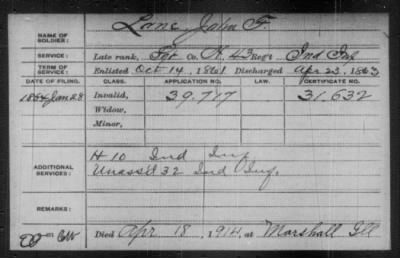 NAME OF SOLDIER: Lane John F.
SERVICE: Late rank, Sgt Co. K, 43 Reg't Ind Inf
TERM OF SERVICE: Enlisted Oct 14, 1861 Discharged Apr 23, 1863
DATE OF FILING. CLASS. APPLICATION NO. CERTIFICATE NO.
1864 Jan 28 Invalid, 39.717 31.632
Widow,
Minor,
ADDITIONAL SERVICES: H 10 Ind Inf
Unass'd 32 Ind Inf.
REMARKS:
Died Apr 18, 1914, at Marshall Ill